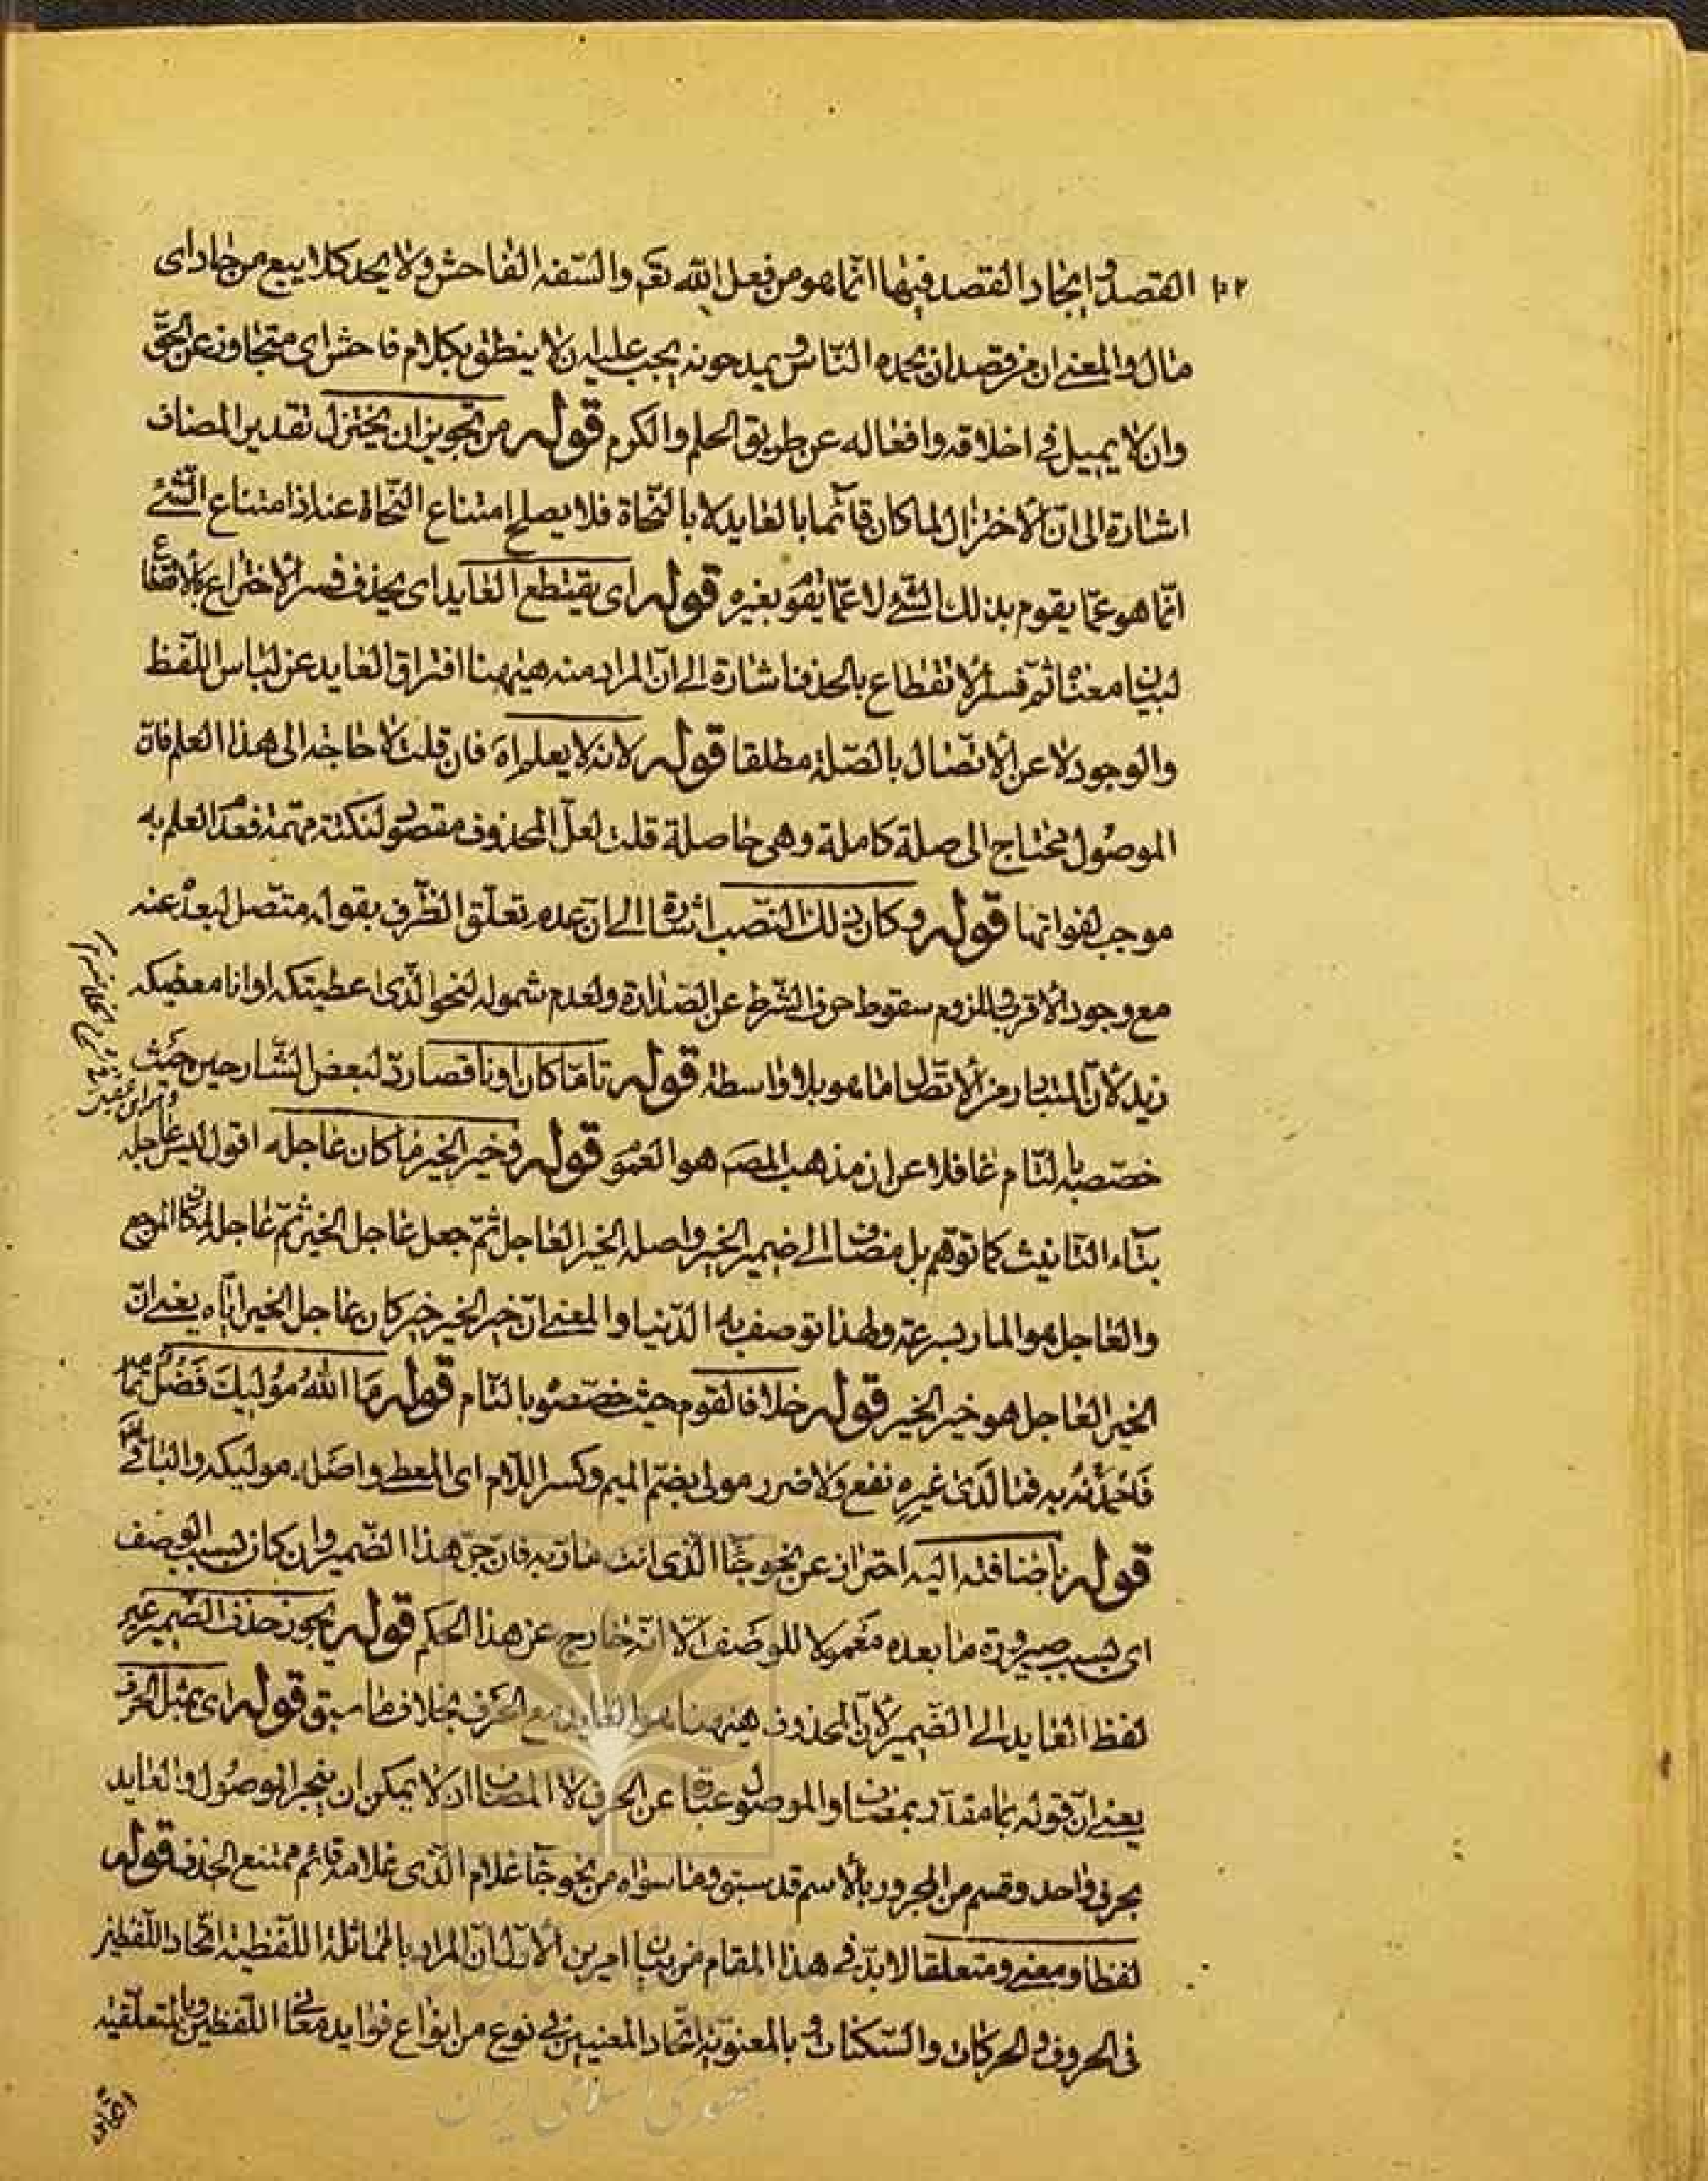 ١٠٢ القصد و ايجاد القصد فيها انما هو من فعل الله تعم والسفه الفاحش ولا يحد كلا يبيع من حاد اى
مال والمعنى ان من قصد ان يحمده الناس و يمدحونه يجب عليه ان لا ينطق بكلام فاحش اى متجاوز عن الحق
وان لا يميل فى اخلاقه وافعاله عن طريق الحلم والكرم قوله من تجويز ان يختزل تقدير المضاف
اشارة الى ان الاختزال لما كان قائما بالعايد لا بالنحاة فلا يصلح امتناع النحاة عنه اذ امتناع الشئ
انما هو عما يقوم بذلك الشئ لا عما يقوم بغيره قوله اى يقتطع العايد اى يحذف فسر الاختزاع بالاقتطاع
لبيان معناه ثم فسر الانقطاع بالحذف اشارة الى ان المراد منه هيهنا افتراق العايد عن لباس اللفظ
والوجود لا عن الاتصال بالصلة مطلقا قوله لانه لا يعلم اه فان قلت لا حاجة الى هذا العلم فان
الموصول يحتاج الى صلة كاملة وهى حاصلة قلت لعل المحذوف مقصود لنكتة مهمة فعدم العلم به
موجب لفواتها قوله وكان ذلك النصب اشارة الى ان عدم تعلق الظرف بقوله متصل لبعده عنه
مع وجود الاقرب وللزوم سقوط حرف الشرط عن الصدارة ولعدم شموله لنحو الذى اعطيتكه او انا معطيكه
زيد لان المتبادر من الاتصال اما هو بلا واسطة قوله تاما كان او ناقصا رد لبعض الشارحين حيث
خصصه بالتام غافلا عن ان مذهب المص هو العموم قوله وخير الخير ما كان عاجله اقول ليس عاجله
بتاء التانيث كما توهم بل مضاف الى ضمير الخير واصله الخير العاجل ثم جعل عاجل الخير ثم عاجله لمكان المرجع
والعاجل هو المار بسرعة ولهذا توصف به الدنيا والمعنى ان خير الخير خير كان عاجل الخير اياه يعنى ان
الخير العاجل هو خير الخير قوله خلافا لقوم حيث خصصوه بالتام قوله مَا اللهُ مُوليكَ فَضْلٌ
فَاحْمَدَنْهُ بِه فما لَدَى غيرِهِ نفع ولا ضرر مولى بضم الميم وكسر اللام اى المعطى واصله موليكه والباقى
قوله باضافته اليه احتراز عن نحو جاء الذى انت مار به فان جر هذا الضمير وان كان بسبب الوصف
اى بسبب صيرورة ما بعده معمولا للوصف الا انه خارج عن هذا الحكم قوله يجوز حذف الضمير غير
لفظ العايد الى الضمير لان المحذوف هيهنا هو العايد مع الحرف بخلاف ما سبق قوله اى بمثل الحرف
يعنى ان قوله بما مقدر بمضاف والموصول عبارة عن الحرف لا المضاف اذ لا يمكن ان ينجر الموصول والعايد
بحرف واحد وقسم من المجرور بالاسم قد سبق وما سواه من نحو جاء غلام الذى غلامه قائم ممتنع الحذف قوله
لفظا ومعنى ومتعلقا لا بد فى هذا المقام من بيان امرين الاول ان المراد بالمماثلة اللفظية اتحاد اللفظين
فى الحروف والحركات والسكنات و بالمعنوية اتحاد المعنيين فى نوع من انواع فوايد معانى اللفظين وبالمتعلقية